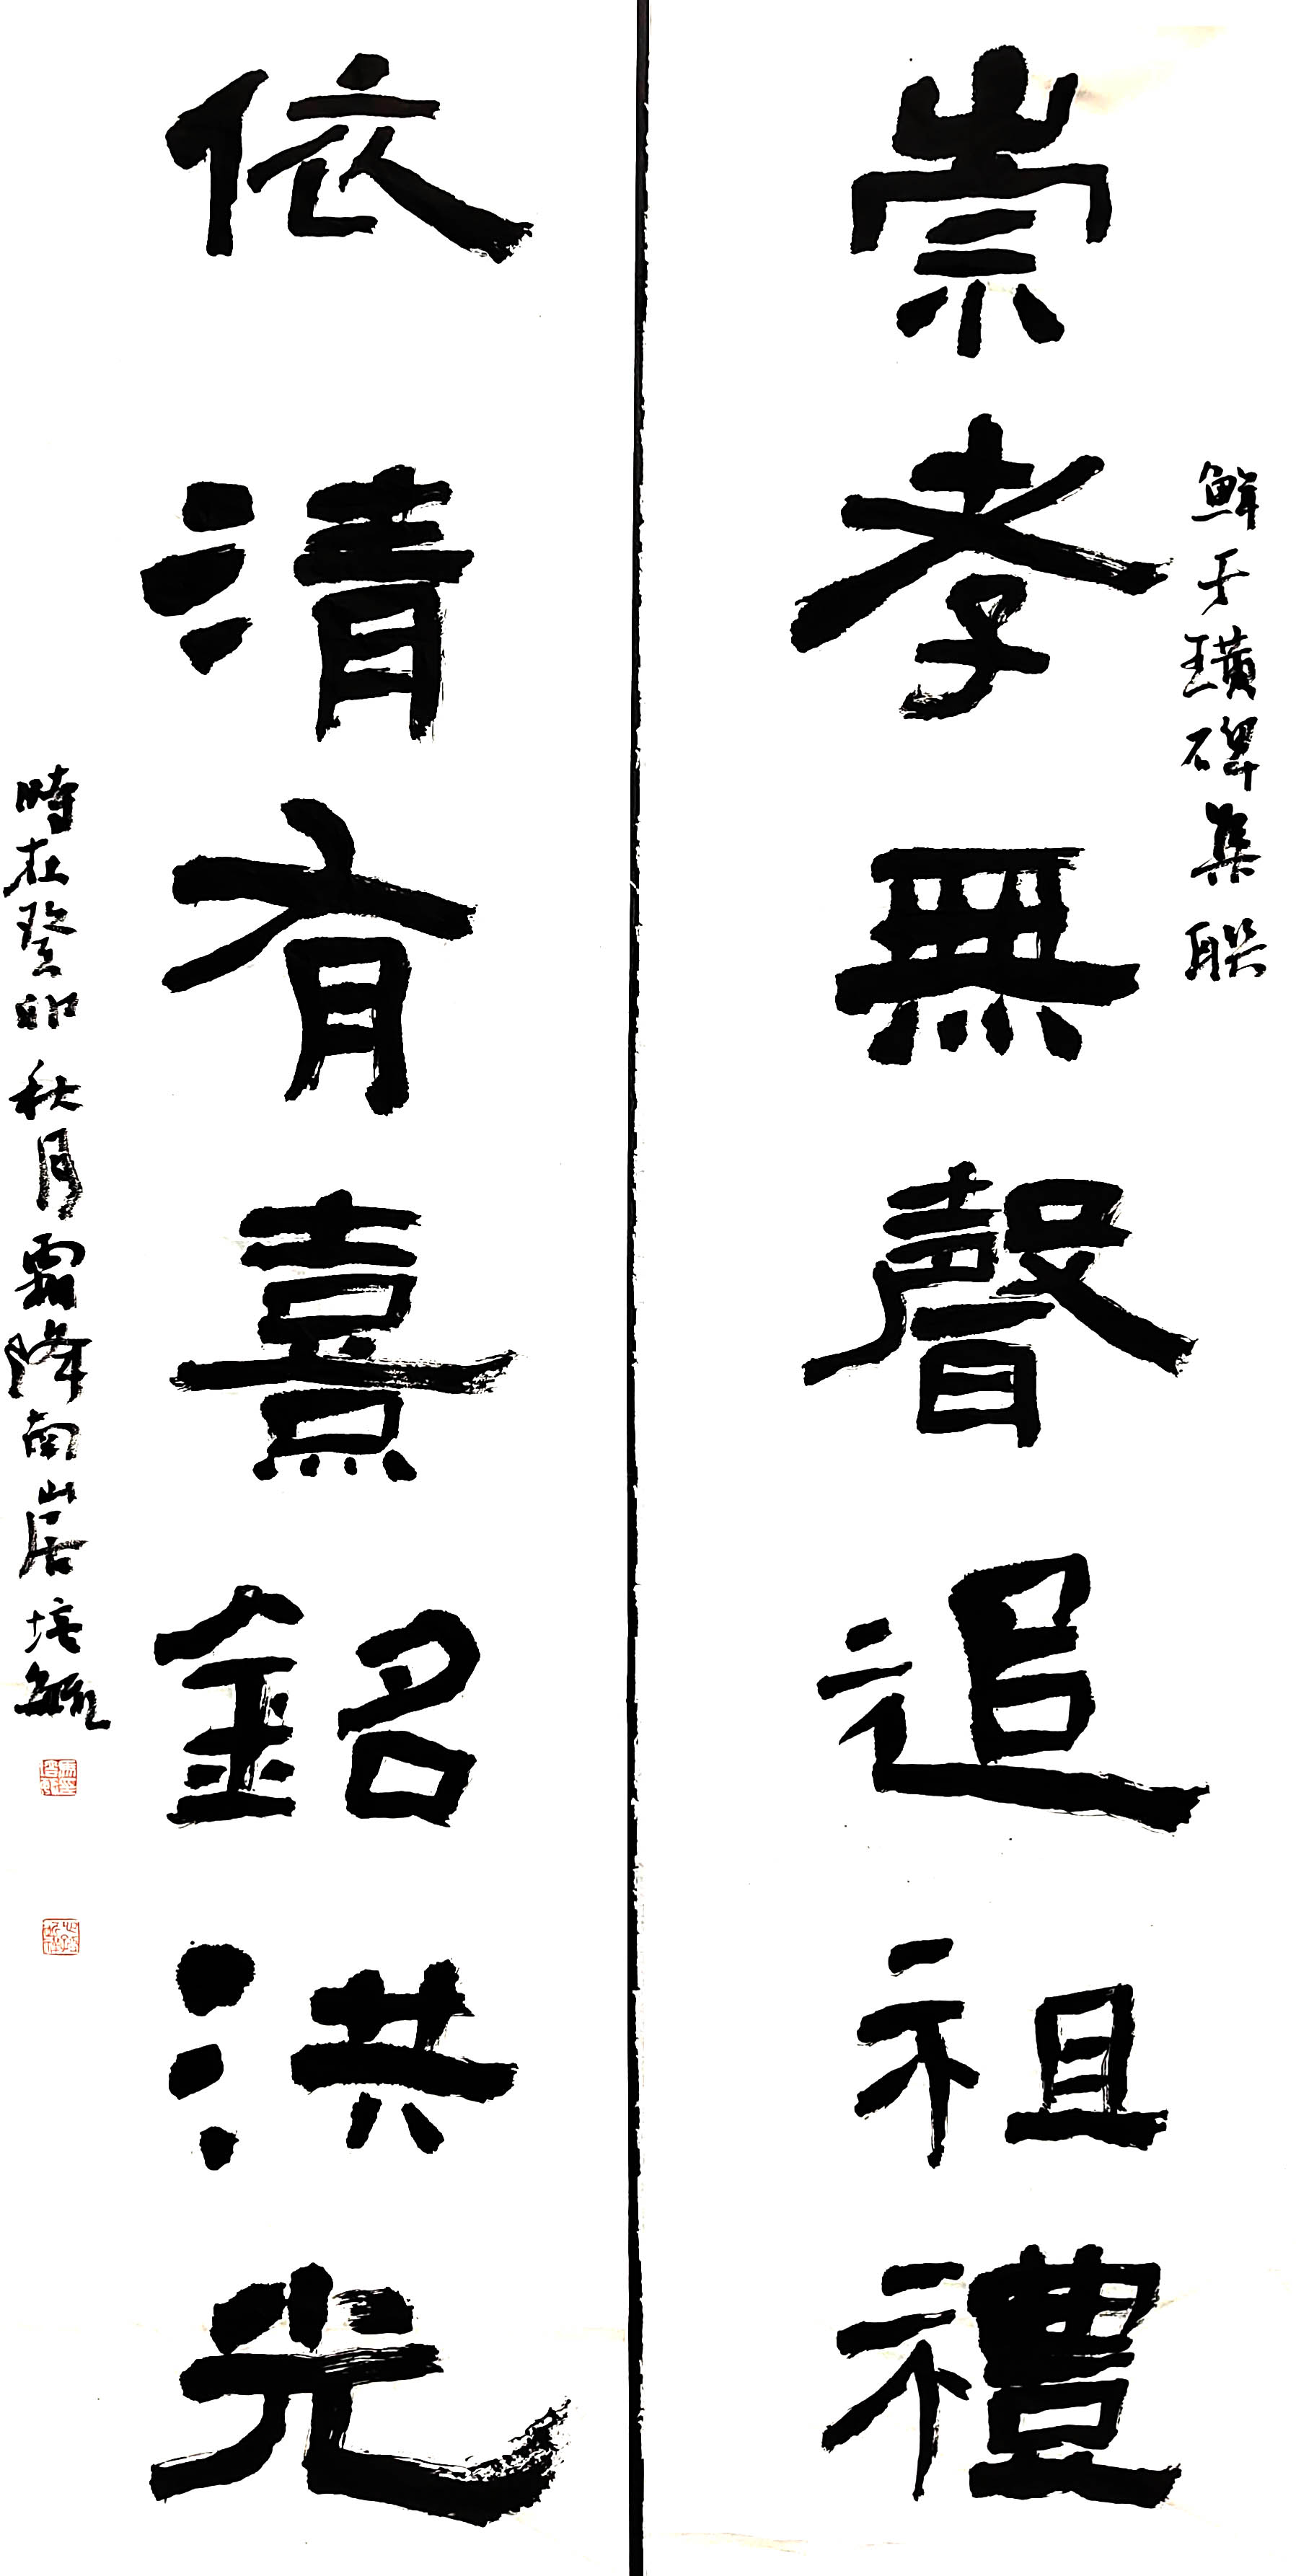 鮮于璜碑集聯
崇孝無聲追祖禮
依清有熹銘洪光
時在癸卯秋月霜降南山居培毓